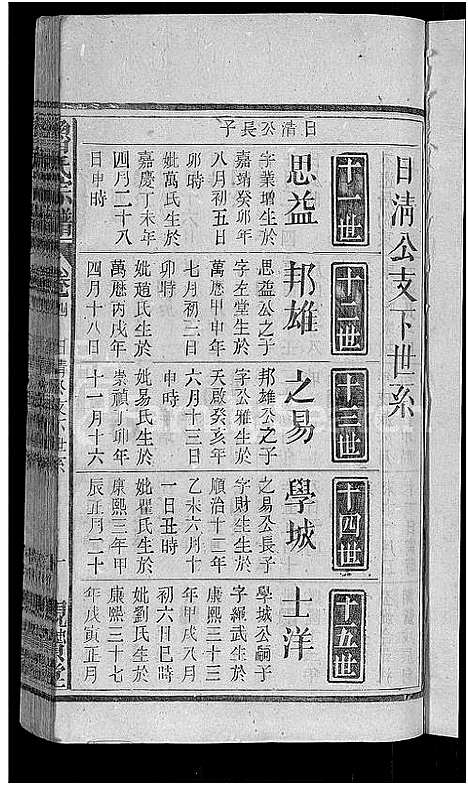 日清公支下世系
十一世
日清公長子
思益
字業增生於
嘉靖癸卯年
八月初五日
卯時
妣萬氏生於
嘉慶丁未年
四月二十八
日申時
十二世
邦雄
思益公之子
字左堂生於
萬曆甲申年
七月初三日
卯時
妣趙氏生於
萬曆丙戌年
四月十八日
十三世
之易
邦雄公之子
字公雅生於
天啟癸亥年
六月十三日
申時
妣易氏生於
崇禎丁卯年
十一月十六
十四世
學城
之易公長子
字財生生於
順治十二年
乙未六月十
一日丑時
妣瞿氏生於
康熙三年甲
辰正月二十
十五世
士洋
學城公嗣子
字繩武生於
康熙三十三
年甲戌八月
初六日巳時
妣劉氏生於
康熙三十七
年戊寅正月
氏宗譜
日清公支下世系